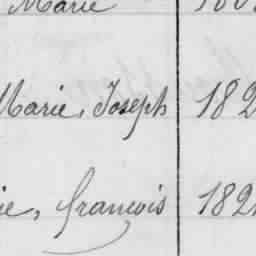 Marie
Marie, Joseph 182
ie, françois 182